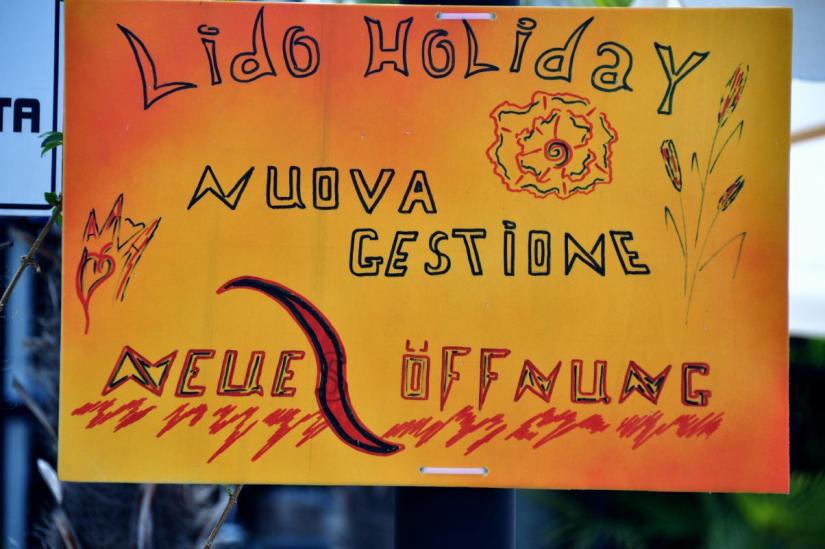 Lido HoLidaY
NUOVA
GESTiONE
NEUE ÖFFNUNG
TA